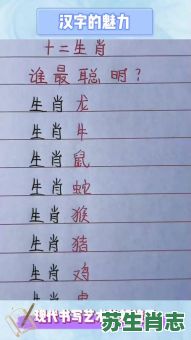 汉字的魅力
十二生肖
谁最聪明？
生肖 龙
生肖 牛
生肖 鼠
生肖 蛇
生肖 猴
生肖 猪
生肖 鸡
生肖 虎
现代书写艺术
苏生肖志